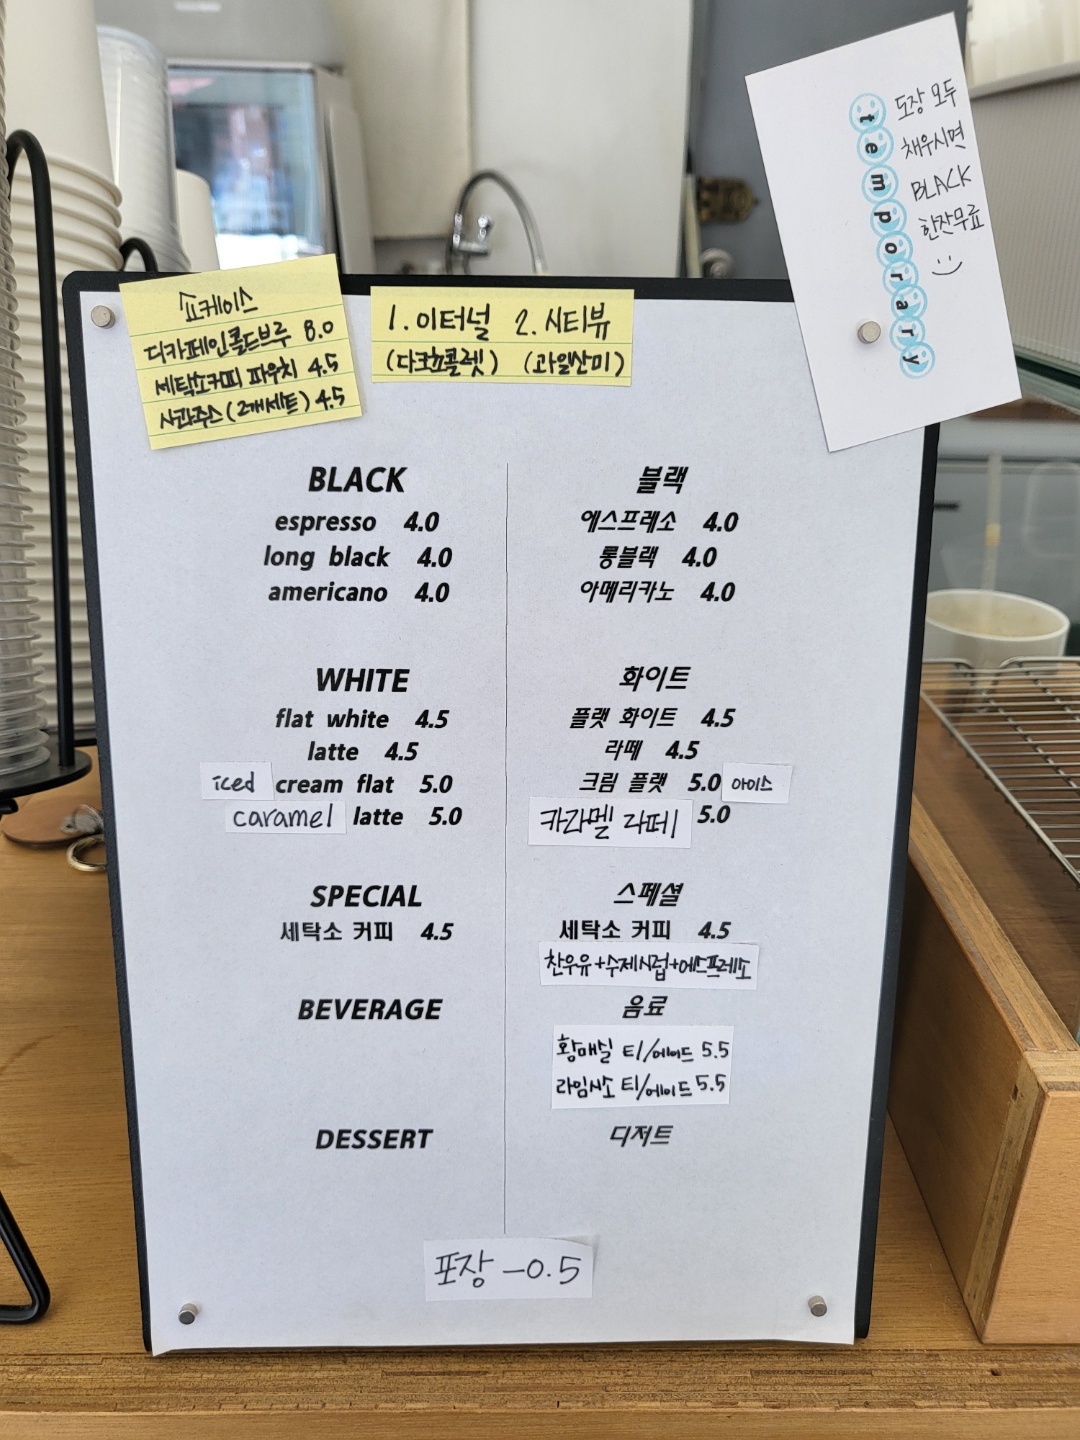 temporary
도장 모두
채우시면
BLACK
한잔무료
쇼케이스
디카페인콜드브루 8.0
세탁소커피 파우치 4.5
사과주스(2개세트) 4.5
1. 이터널 2. 시티뷰
(다크쵸콜렛) (과일산미)
BLACK
espresso 4.0
long black 4.0
americano 4.0
WHITE
flat white 4.5
latte 4.5
iced cream flat 5.0
caramel latte 5.0
SPECIAL
세탁소 커피 4.5
BEVERAGE
DESSERT
블랙
에스프레소 4.0
롱블랙 4.0
아메리카노 4.0
화이트
플랫 화이트 4.5
라떼 4.5
크림 플랫 5.0 아이스
카라멜 라떼 5.0
스페셜
세탁소 커피 4.5
찬우유+수제시럽+에스프레소
음료
황매실 티/에이드 5.5
라임시소 티/에이드 5.5
디저트
포장 -0.5